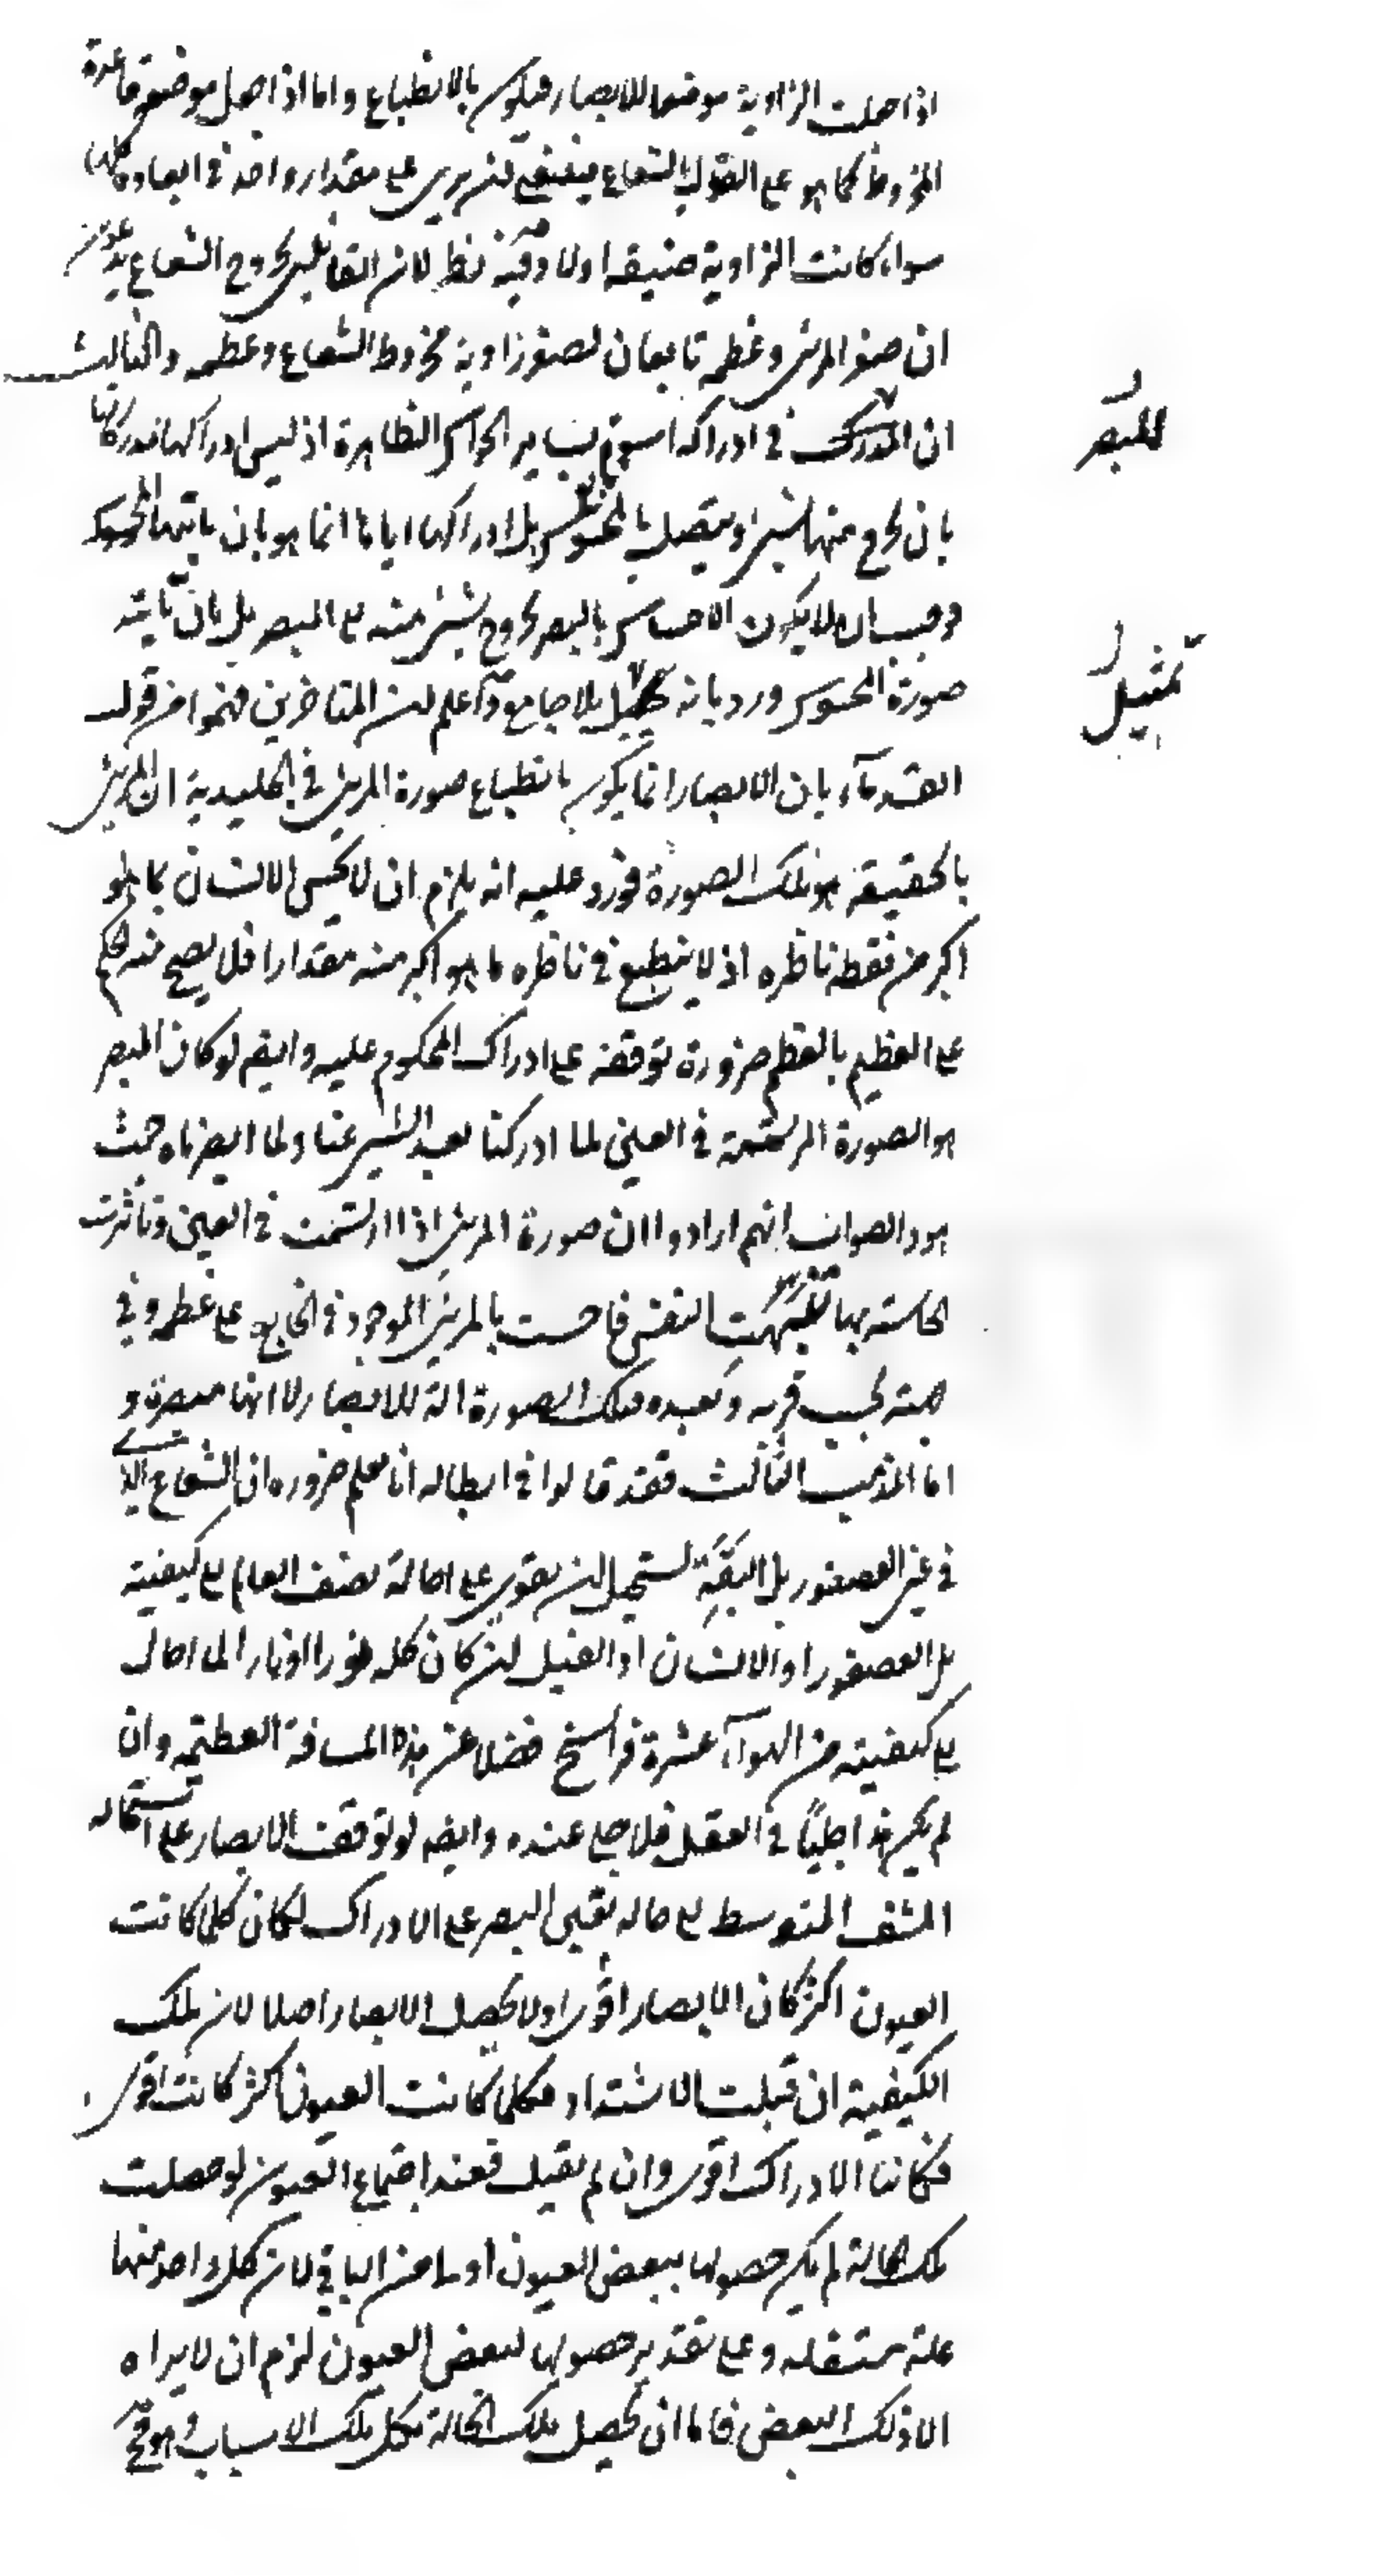 اذا جعلت الزاوية موضعا للابصار فيكون بالانطباع واما اذا جعل موضعه قاعدة
المخروط كما هو على القول بالشعاع فينبغي لن يرى على مقدار واحد في ابعاده كلها
سواء كانت الزاوية ضيقة اولا وفيه نظر لان القائلين بخروج الشعاع يدعون
ان صغر المرئى وعظمه تابعان لصغر زاوية مخروط الشعاع وعظمه والثالث
ان المدرك في ادراكه اسوة بساير الحواس الظاهرة اذ ليس ادراكها لمدركاتها
للبصر
بان يخرج منها شيئ ويتصل بالمحسوس بل ادراكها اياها انما هو بان ياتيها المحسوس
فوجب ان لا يكون الاحساس بالبصر بخروج شيئ منه الى المبصر بل بان ياتيه
صورة المحسوس ورد بانه تمثيل بلا جامع واعلم لن المتاخرين فهموا من قول
تمثيل
القدماء بان الابصار انما يكون بانطباع صورة المرئى في الجليدية ان المرئى
بالحقيقة هو تلك الصورة فورد عليه انه يلزم ان لا يحس الانسان بما هو
اكبر من نقطة ناظره اذ لا ينطبع في ناظره ما هو اكبر منه مقدارا فلا يصح منه الحكم
على العظيم بالعظم ضرورة توقفه على ادراك المحكوم عليه وايضا لو كان المبصر
هو الصورة المرتسمة في العين لما ادركنا بعد الشيئ عنا ولما ابصرناه حيث
هو والصواب انهم ارادوا ان صورة المرئى اذا ارتسمت في العين وتاثرت
الحاسة بها تنبهت النفس فاحست بالمرئى الموجود في الخارج على عظمه وفي
جهته بحسب قربه وبعده فتلك الصورة الة للابصار لا انها مبصرة و
اما المذهب الثالث فقد قالوا في ابطاله انا نعلم ضرورة ان الشعاع الذي
في عين العصفور بل البقة يستحيل لن يقوى على احالة نصف العالم الى كيفيته
بل العصفور او الانسان او الفيل لن كان كله نورا او نارا لما احال
الى كيفيته من الهواء عشرة فراسخ فضلا عن هذه المسافة العظيمة وان
لم يكن هذا جليًا في العقل فلا جلي عنده وايضا لو توقف الابصار على استحالة
المشف المتوسط الى حالة تعين البصر على الادراك لكان كلما كانت
العيون اكثر كان الابصار اقوى اولا يحصل الابصار اصلا لان تلك
الكيفية ان قبلت الاشتداد فكلما كانت العيون اكثر كانت اقوى
فكان الادراك اقوى وان لم يقبل فعند اجتماع العيون لو حصلت
تلك الحالة لم يكن حصولها ببعض العيون اولى من الباقي لان كل واحد منها
علة مستقلة وعلى تقدير حصولها لبعض العيون لزم ان لا يراه
الا ذلك البعض فاما ان يحصل بتلك الحالة بكل تلك الاسباب وهو مح